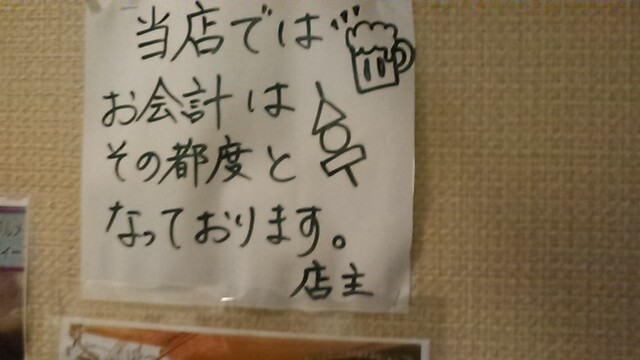 当店では
お会計は
その都度と
なっております。
店主